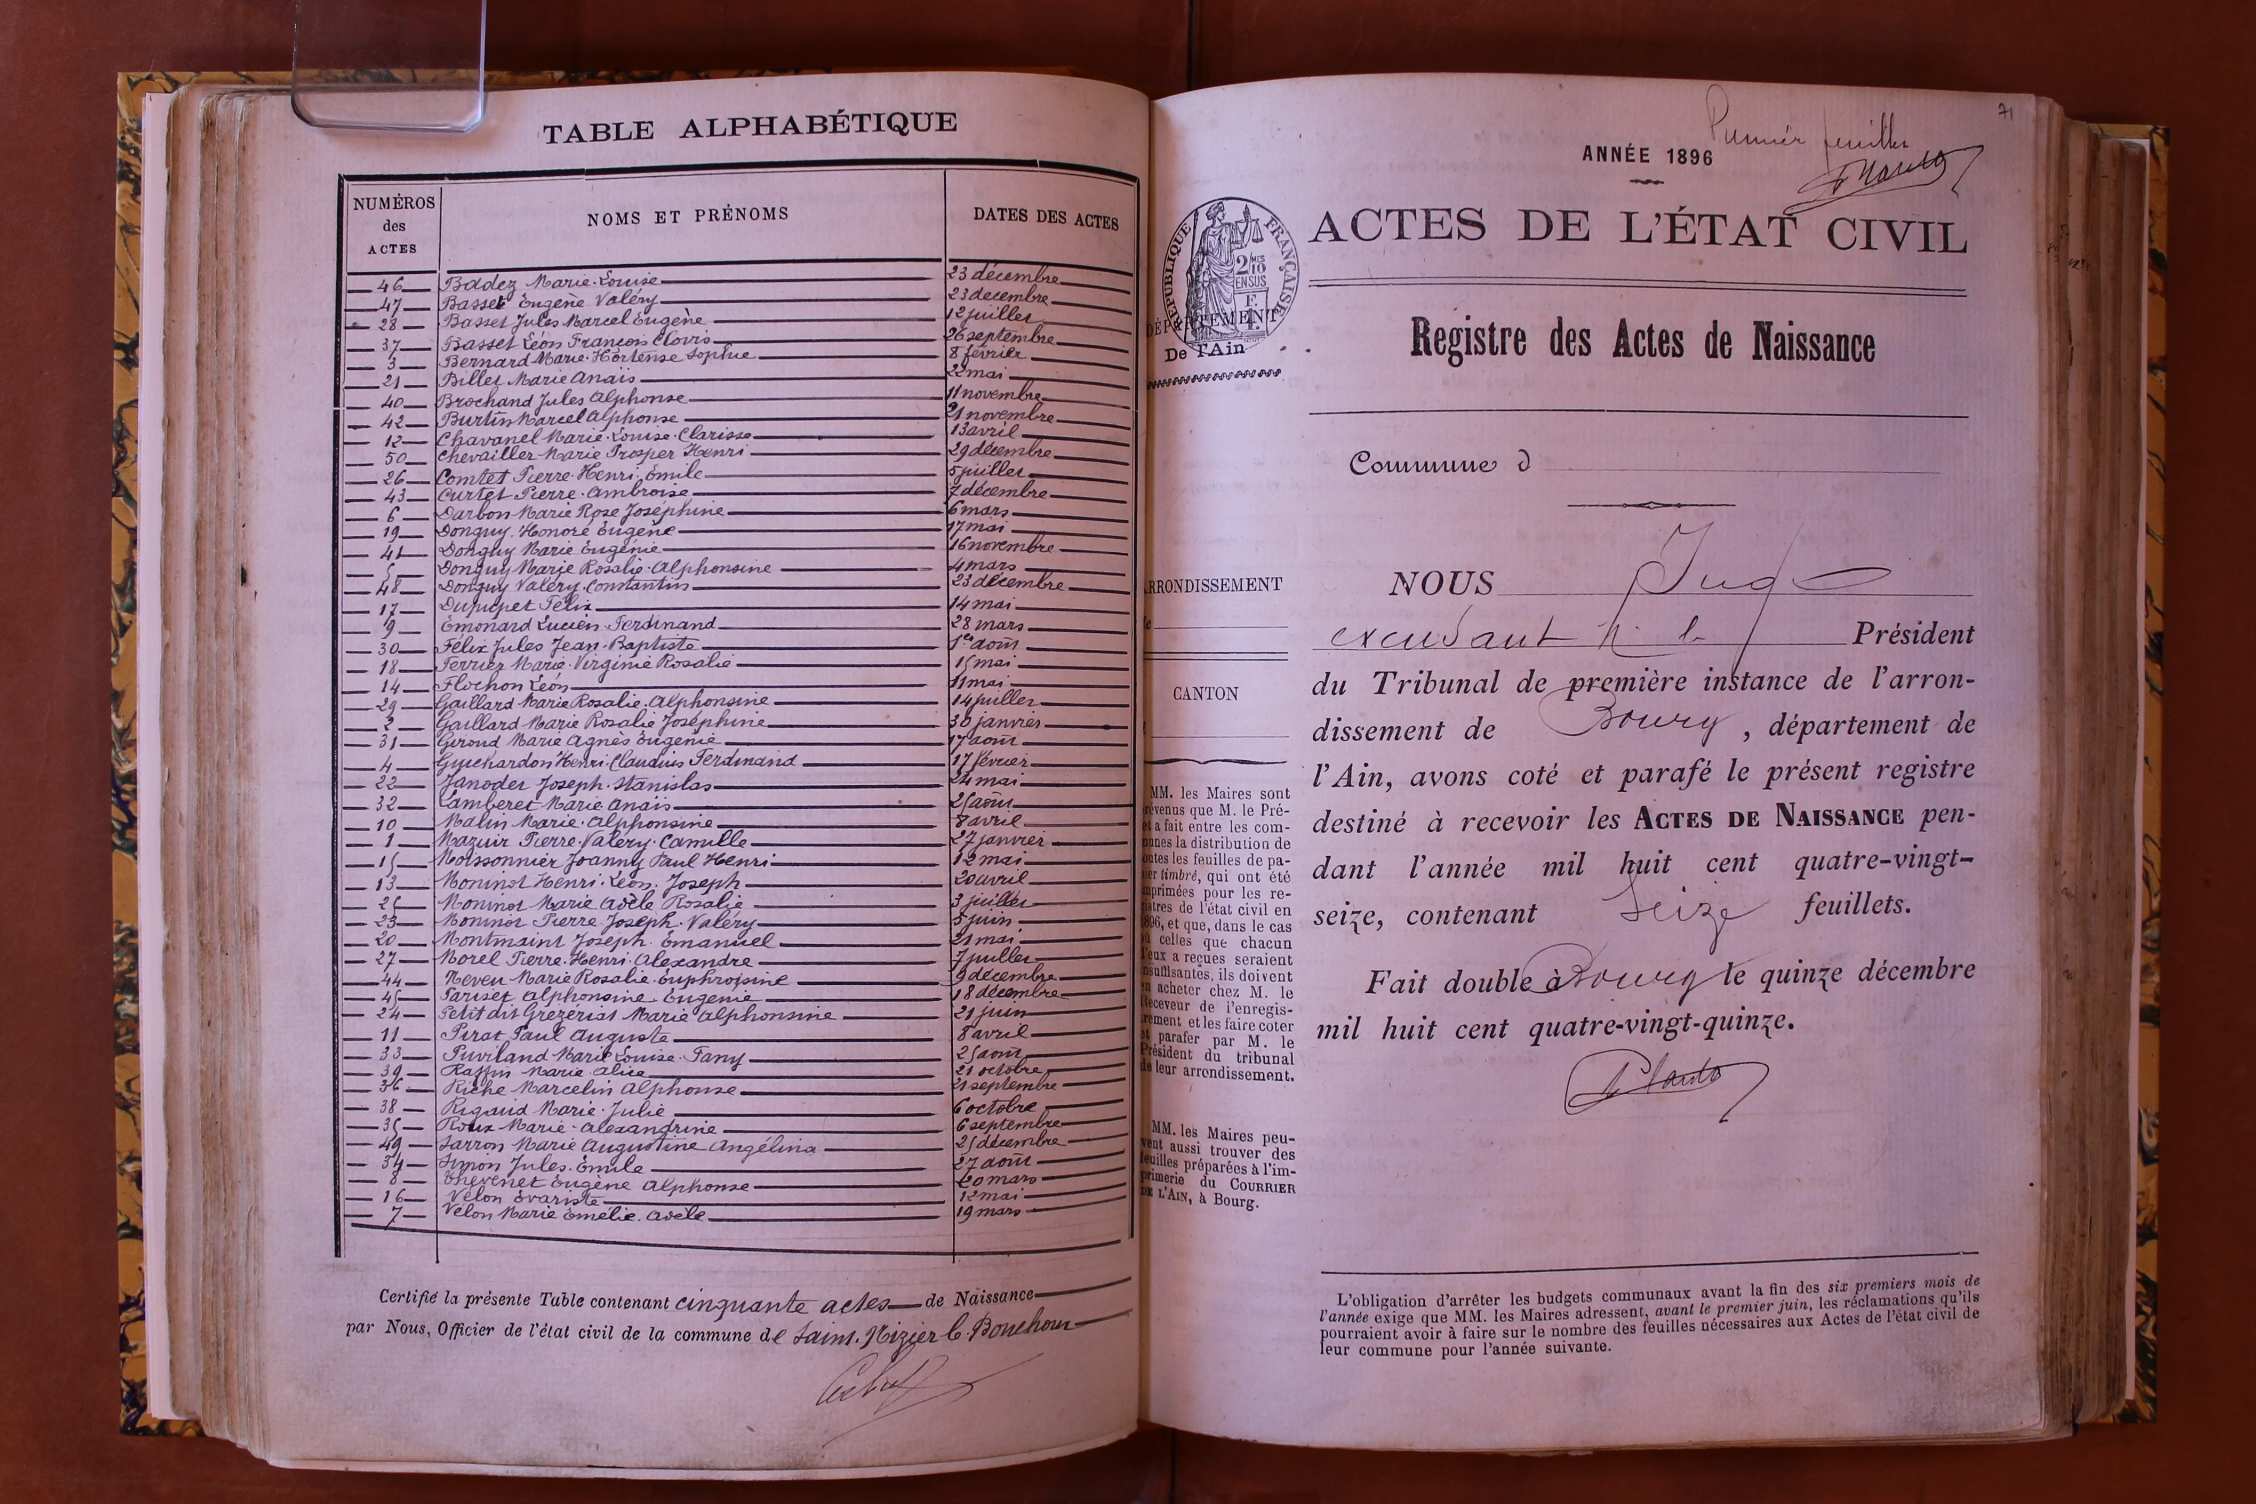 TABLE ALPHABÉTIQUE
NUMÉROS des ACTES NOMS ET PRÉNOMS DATES DES ACTES
46 Badez Marie-Louise 23 décembre
47 Basset Eugène Valéry 23 décembre
28 Basset Jules Marcel Eugène 12 juillet
37 Basset Léon François Clovis 26 septembre
3 Bernard Marie-Hortense Sophie 8 février
21 Billet Marie Anaïs 22 mai
40 Brochand Jules Alphonse 11 novembre
42 Burtin Marcel Alphonse 21 novembre
12 Chavanel Marie-Louise-Clarisse 13 avril
50 Chevailler Marie Prosper Henri 29 décembre
26 Comtet Pierre-Henri-Emile 5 juillet
43 Curtet Pierre-Ambroise 7 décembre
6 Darbon Marie Rose Joséphine 6 mars
19 Donguy Honoré Eugène 17 mai
41 Donguy Marie Eugénie 16 novembre
5 Donguy Marie Rosalie-Alphonsine 4 mars
48 Donguy Valéry-Constantin 23 décembre
17 Dupupet Félix 14 mai
9 Emonard Lucien-Ferdinand 28 mars
30 Félix Jules Jean-Baptiste 1er août
18 Ferrier Marie-Virginie Rosalie 15 mai
14 Flochon Léon 11 mai
29 Gaillard Marie Rosalie-Alphonsine 14 juillet
2 Gaillard Marie Rosalie Joséphine 30 janvier
31 Geroud Marie Agnès Eugénie 17 août
4 Guichardon Henri-Claudius Ferdinand 17 février
22 Janodet Joseph-Stanislas 24 mai
32 Lamberet Marie Anaïs 25 août
10 Malin Marie-Alphonsine 8 avril
1 Mazuir Pierre-Valéry-Camille 27 janvier
15 Moissonnier Joanny Paul Henri 12 mai
13 Moninot Henri-Léon-Joseph 20 avril
25 Moninot Marie Adèle Rosalie 3 juillet
23 Moninot Pierre Joseph-Valéry 5 juin
20 Montmaint Joseph-Emanuel 21 mai
27 Morel Pierre-Henri-Alexandre 7 juillet
44 Neveu Marie Rosalie-Euphrosine 9 décembre
45 Pariset Alphonsine Eugénie 18 décembre
24 Petit dit Grezériat Marie Alphonsine 21 juin
11 Pirat Paul Auguste 8 avril
33 Puviland Marie Louise-Fany 25 août
39 Raffin Marie Alice 21 octobre
36 Riche Marcelin Alphonse 21 septembre
38 Rigaud Marie-Julie 6 octobre
35 Roux Marie-Alexandrine 6 septembre
49 Sarron Marie Augustine Angélina 25 décembre
34 Simon Jules-Emile 27 août
8 Thévenet Eugène Alphonse 20 mars
16 Velon Evariste 12 mai
7 Vélon Marie Emélie-Adèle 19 mars
Certifié la présente Table contenant cinquante actes de Naissance
par Nous, Officier de l'état civil de la commune de Saint-Nizier le Bouchoux
71
Premier feuillet
ANNÉE 1896
ACTES DE L'ÉTAT CIVIL
RÉPUBLIQUE FRANÇAISE
2/10 MES
EN SUS
DÉPARTEMENT
De l'Ain
Registre des Actes de Naissance
Commune d
ARRONDISSEMENT
CANTON
MM. les Maires sont
prévenus que M. le Pré-
fet a fait entre les com-
munes la distribution de
toutes les feuilles de pa-
pier timbré, qui ont été
imprimées pour les re-
gistres de l'état civil en
1896, et que, dans le cas
où celles que chacun
d'eux a reçues seraient
insuffisantes, ils doivent
en acheter chez M. le
Receveur de l'enregis-
trement et les faire coter
et parafer par M. le
Président du tribunal
de leur arrondissement.
MM. les Maires peu-
vent aussi trouver des
feuilles préparées à l'im-
primerie du COURRIER
DE L'AIN, à Bourg.
NOUS Juge
Président
du Tribunal de première instance de l'arron-
dissement de Bourg, département de
l'Ain, avons coté et parafé le présent registre
destiné à recevoir les ACTES DE NAISSANCE pen-
dant l'année mil huit cent quatre-vingt-
seize, contenant Seize feuillets.
Fait double à Bourg le quinze décembre
mil huit cent quatre-vingt-quinze.
L'obligation d'arrêter les budgets communaux avant la fin des six premiers mois de
l'année exige que MM. les Maires adressent, avant le premier juin, les réclamations qu'ils
pourraient avoir à faire sur le nombre des feuilles nécessaires aux Actes de l'état civil de
leur commune pour l'année suivante.